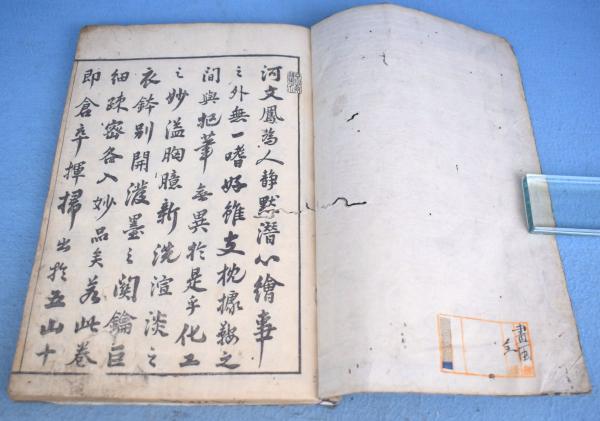 河文鳳為人静黙潜心繪事
之外無一嗜好雖支枕據鞍之
間與把筆無異於是乎化工
之妙溢胸臆新洗渲淡之
衣鉢別開潑墨之関鑰巨
細疎密各入妙品矣若此卷
即倉卒揮掃出於五山十
畫